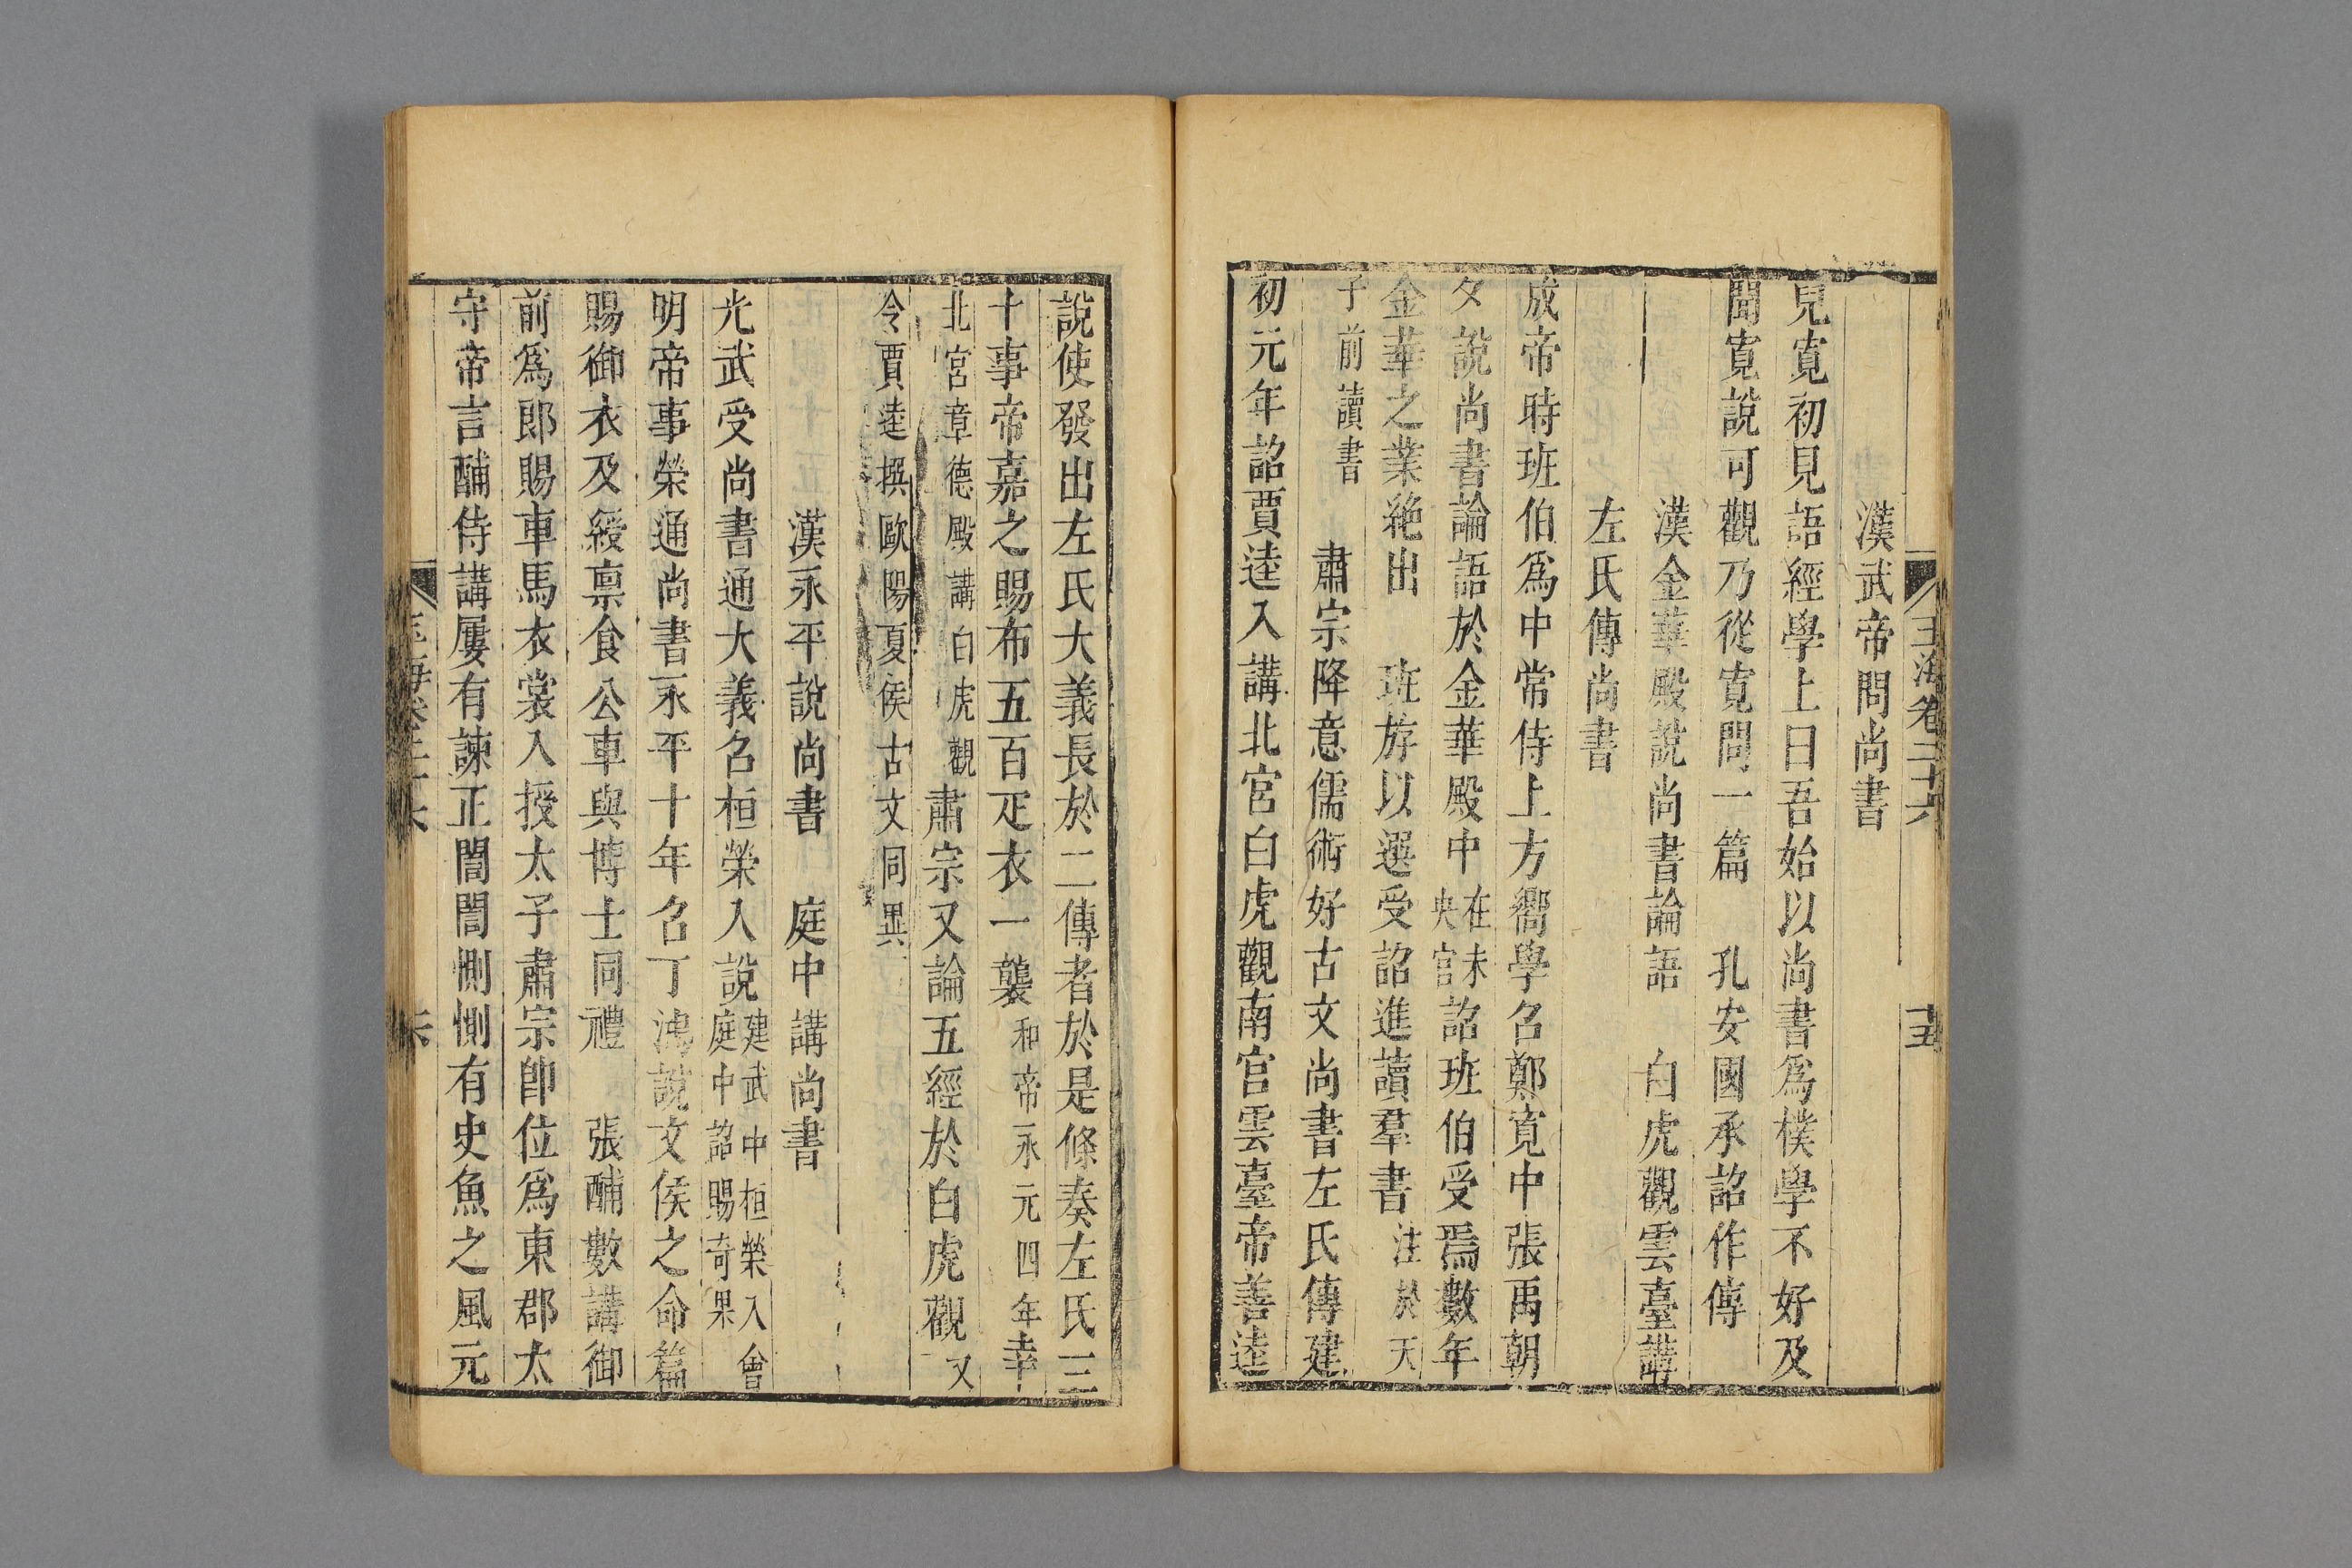 玉海卷二十六 十五
漢武帝問尚書
兒寛初見語經學上曰吾始以尚書爲樸學不好及
聞寛說可觀乃從寛問一篇 孔安國承詔作傳
漢金華殿說尚書論語 白虎觀雲臺講
左氏傳尚書
成帝時班伯爲中常侍上方嚮學名鄭寛中張禹朝
夕說尚書論語於金華殿中在未央宫詔班伯受焉數年
金華之業絶出 班斿以選受詔進讀羣書注於天
子前讀書 肅宗降意儒術好古文尚書左氏傳建
初元年詔賈逵入講北宮白虎觀南宫雲臺帝善逵
說使發出左氏大義長於二傳者於是條奏左氏三
十事帝嘉之賜布五百疋衣一襲和帝永元四年幸
北宮章德殿講白虎觀肅宗又論五經於白虎觀又
令賈逵撰歐陽夏侯古文同異
漢永平說尚書 庭中講尚書
光武受尚書通大義名桓榮入說建武中桓榮入會庭中詔賜奇果
明帝事榮通尚書永平十年名丁鴻說文侯之命篇
賜御衣及綬禀食公車與博士同禮 張酺數講御
前爲郎賜車馬衣裳入授太子肅宗卽位爲東郡太
守帝言酺侍講屢有諫正誾誾惻惻有史魚之風元